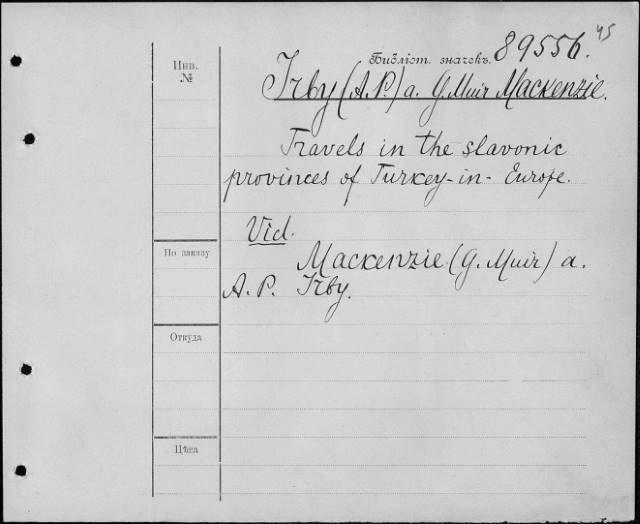 45
Библіот. значекъ. 89556.
Инв.
№
Irby (A.P.) a. G. Muir Mackenzie.
Travels in the slavonic
provinces of Turkey-in-Europe.
Vid.
По заказу
Mackenzie (G. Muir) a.
A. P. Irby.
Откуда
Цѣна